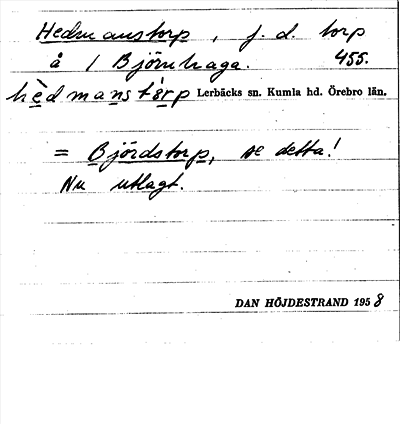 Hedmanstorp, f. d. torp
å 1 Björnhaga. 455.
hèdmanstȧrp Lerbäcks sn. Kumla hd. Örebro län.
= Björdstorp, se detta!
Nu utlagt.
DAN HÖJDESTRAND 1958